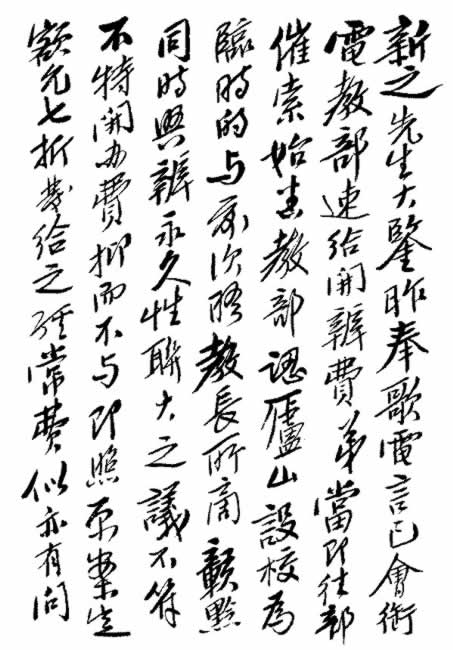 新之先生大鑒昨奉歌電言已會銜
電教部速給開辦費弟當即往部
催索始悉教部認廬山設校為
臨時的与前次晤教長所商贛黔
同時興辦永久性聯大之議不符
不特開办費抑而不与即照原案定
額允七折發給之經常費似亦有問